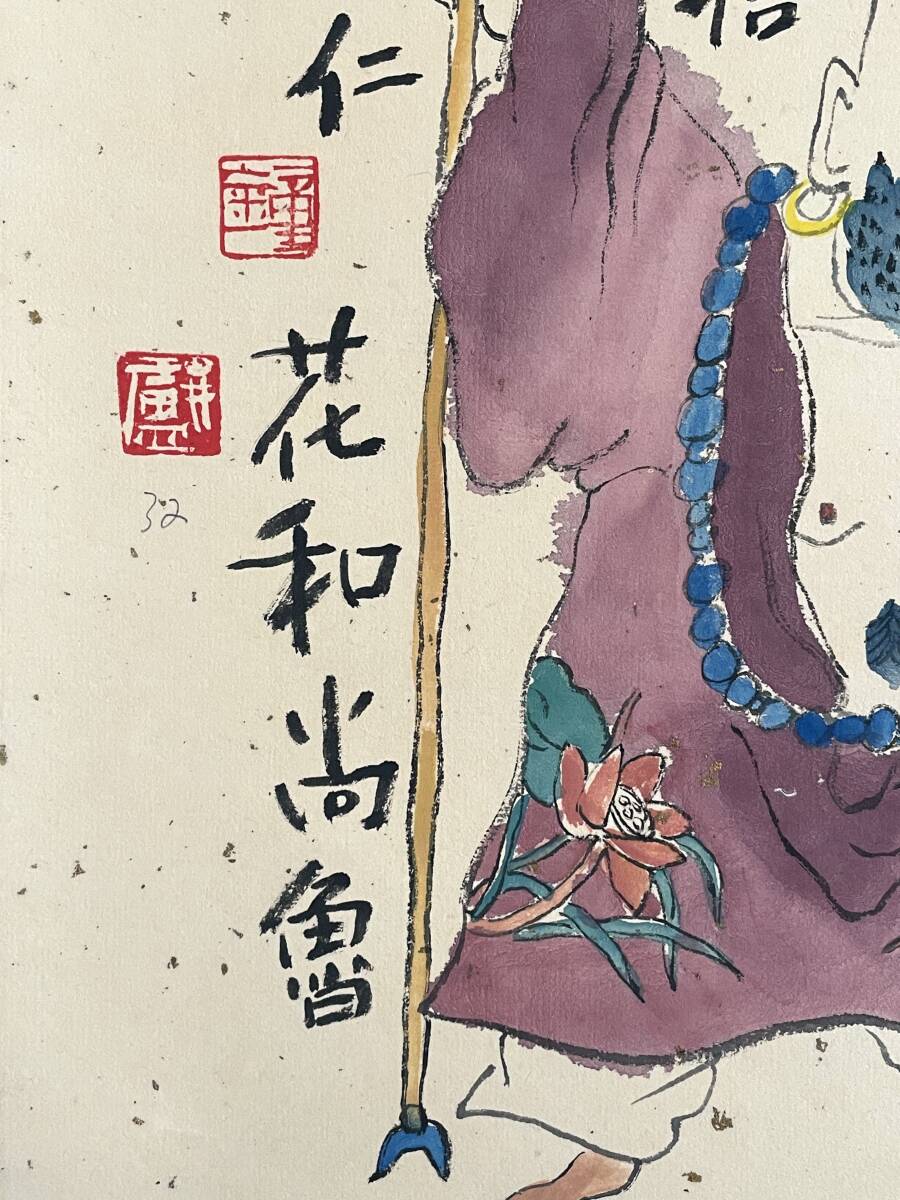 仁
花和尚魯
32